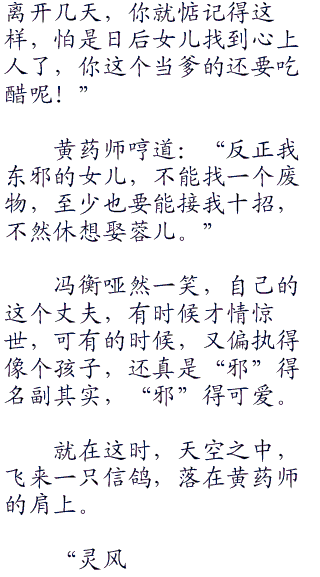 离开几天，你就惦记得这
样，怕是日后女儿找到心上
人了，你这个当爹的还要吃
醋呢！”
黄药师哼道：“反正我
东邪的女儿，不能找一个废
物，至少也要能接我十招，
不然休想娶蓉儿。”
冯衡哑然一笑，自己的
这个丈夫，有时候才情惊
世，可有的时候，又偏执得
像个孩子，还真是“邪”得
名副其实，“邪”得可爱。
就在这时，天空之中，
飞来一只信鸽，落在黄药师
的肩上。
“灵风